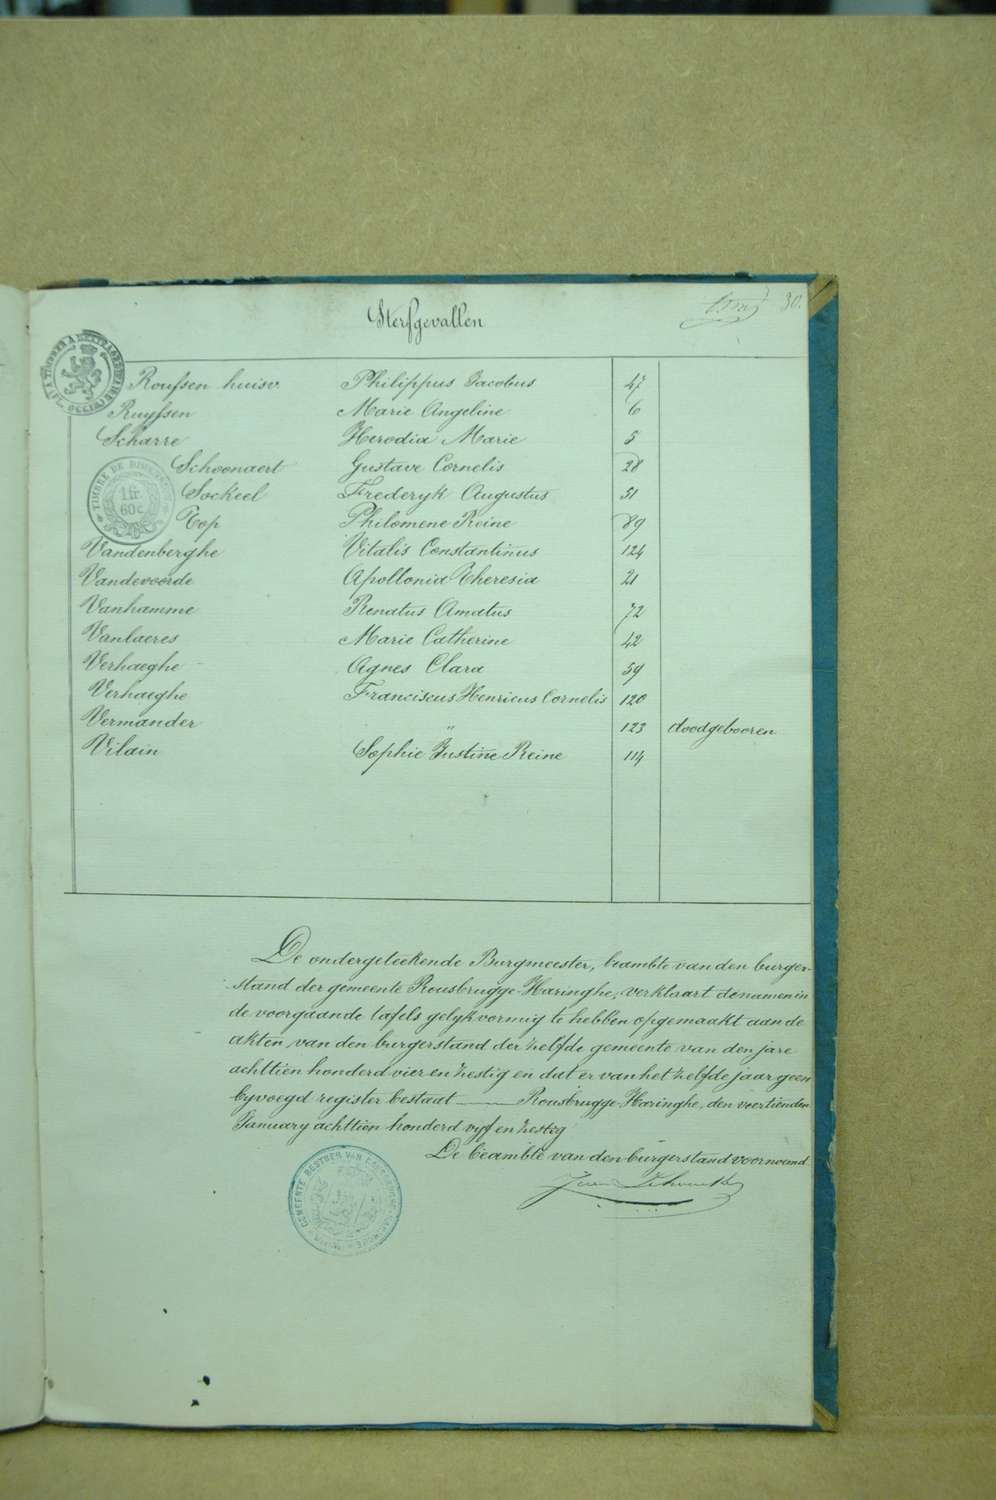 30.
Sterfgevallen
Roussen huisv. Philippus Jacobus 47
Ruyssen Marie Angeline 6
Scharre Herodia Marie 5
Schoonaert Gustave Cornelis 28
Sockeel Frederyk Augustus 31
Top Philomene Reine 89
Vandenberghe Vitalis Constantinus 124
Vandevoorde Apollonia Theresia 21
Vanhamme Renatus Amatus 72
Vanlaeres Marie Catherine 42
Verhaeghe Agnes Clara 59
Verhaeghe Franciscus Henricus Cornelis 120
Vermander " 123 doodgebooren
Vilain Sophie Justine Reine 114
TIMBRE DE DIMENSION
1 fr.
60 c.
De ondergeteekende Burgmeester, beambte van den burger-
stand der gemeente Rousbrugge-Haringhe, verklaart de namen in
de voorgaande tafels gelykvormig te hebben opgemaakt aan de
akten van den burgerstand der zelfde gemeente van den jare
achttien honderd vier en zestig en dat er van het zelfde jaar geen
byvoegd register bestaat ___ Rousbrugge-Haringhe, den veertienden
January achttien honderd vyf en zestig
De beambte van den burgerstand voornoemd
GEMEENTE BESTUER VAN